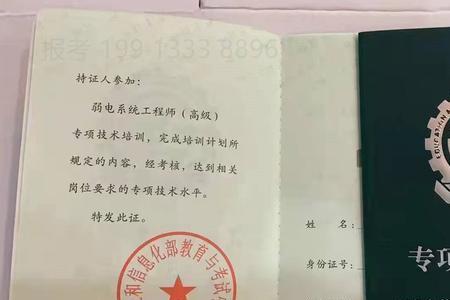 报考 199 1333 8896
持证人参加：
弱电系统工程师（高级）
专项技术培训，完成培训计划所
规定的内容，经考核，达到相关
岗位要求的专项技术水平。
特发此证。
和信息化部教育与考试
姓 名：
身份证号：
EDUCATION
专项